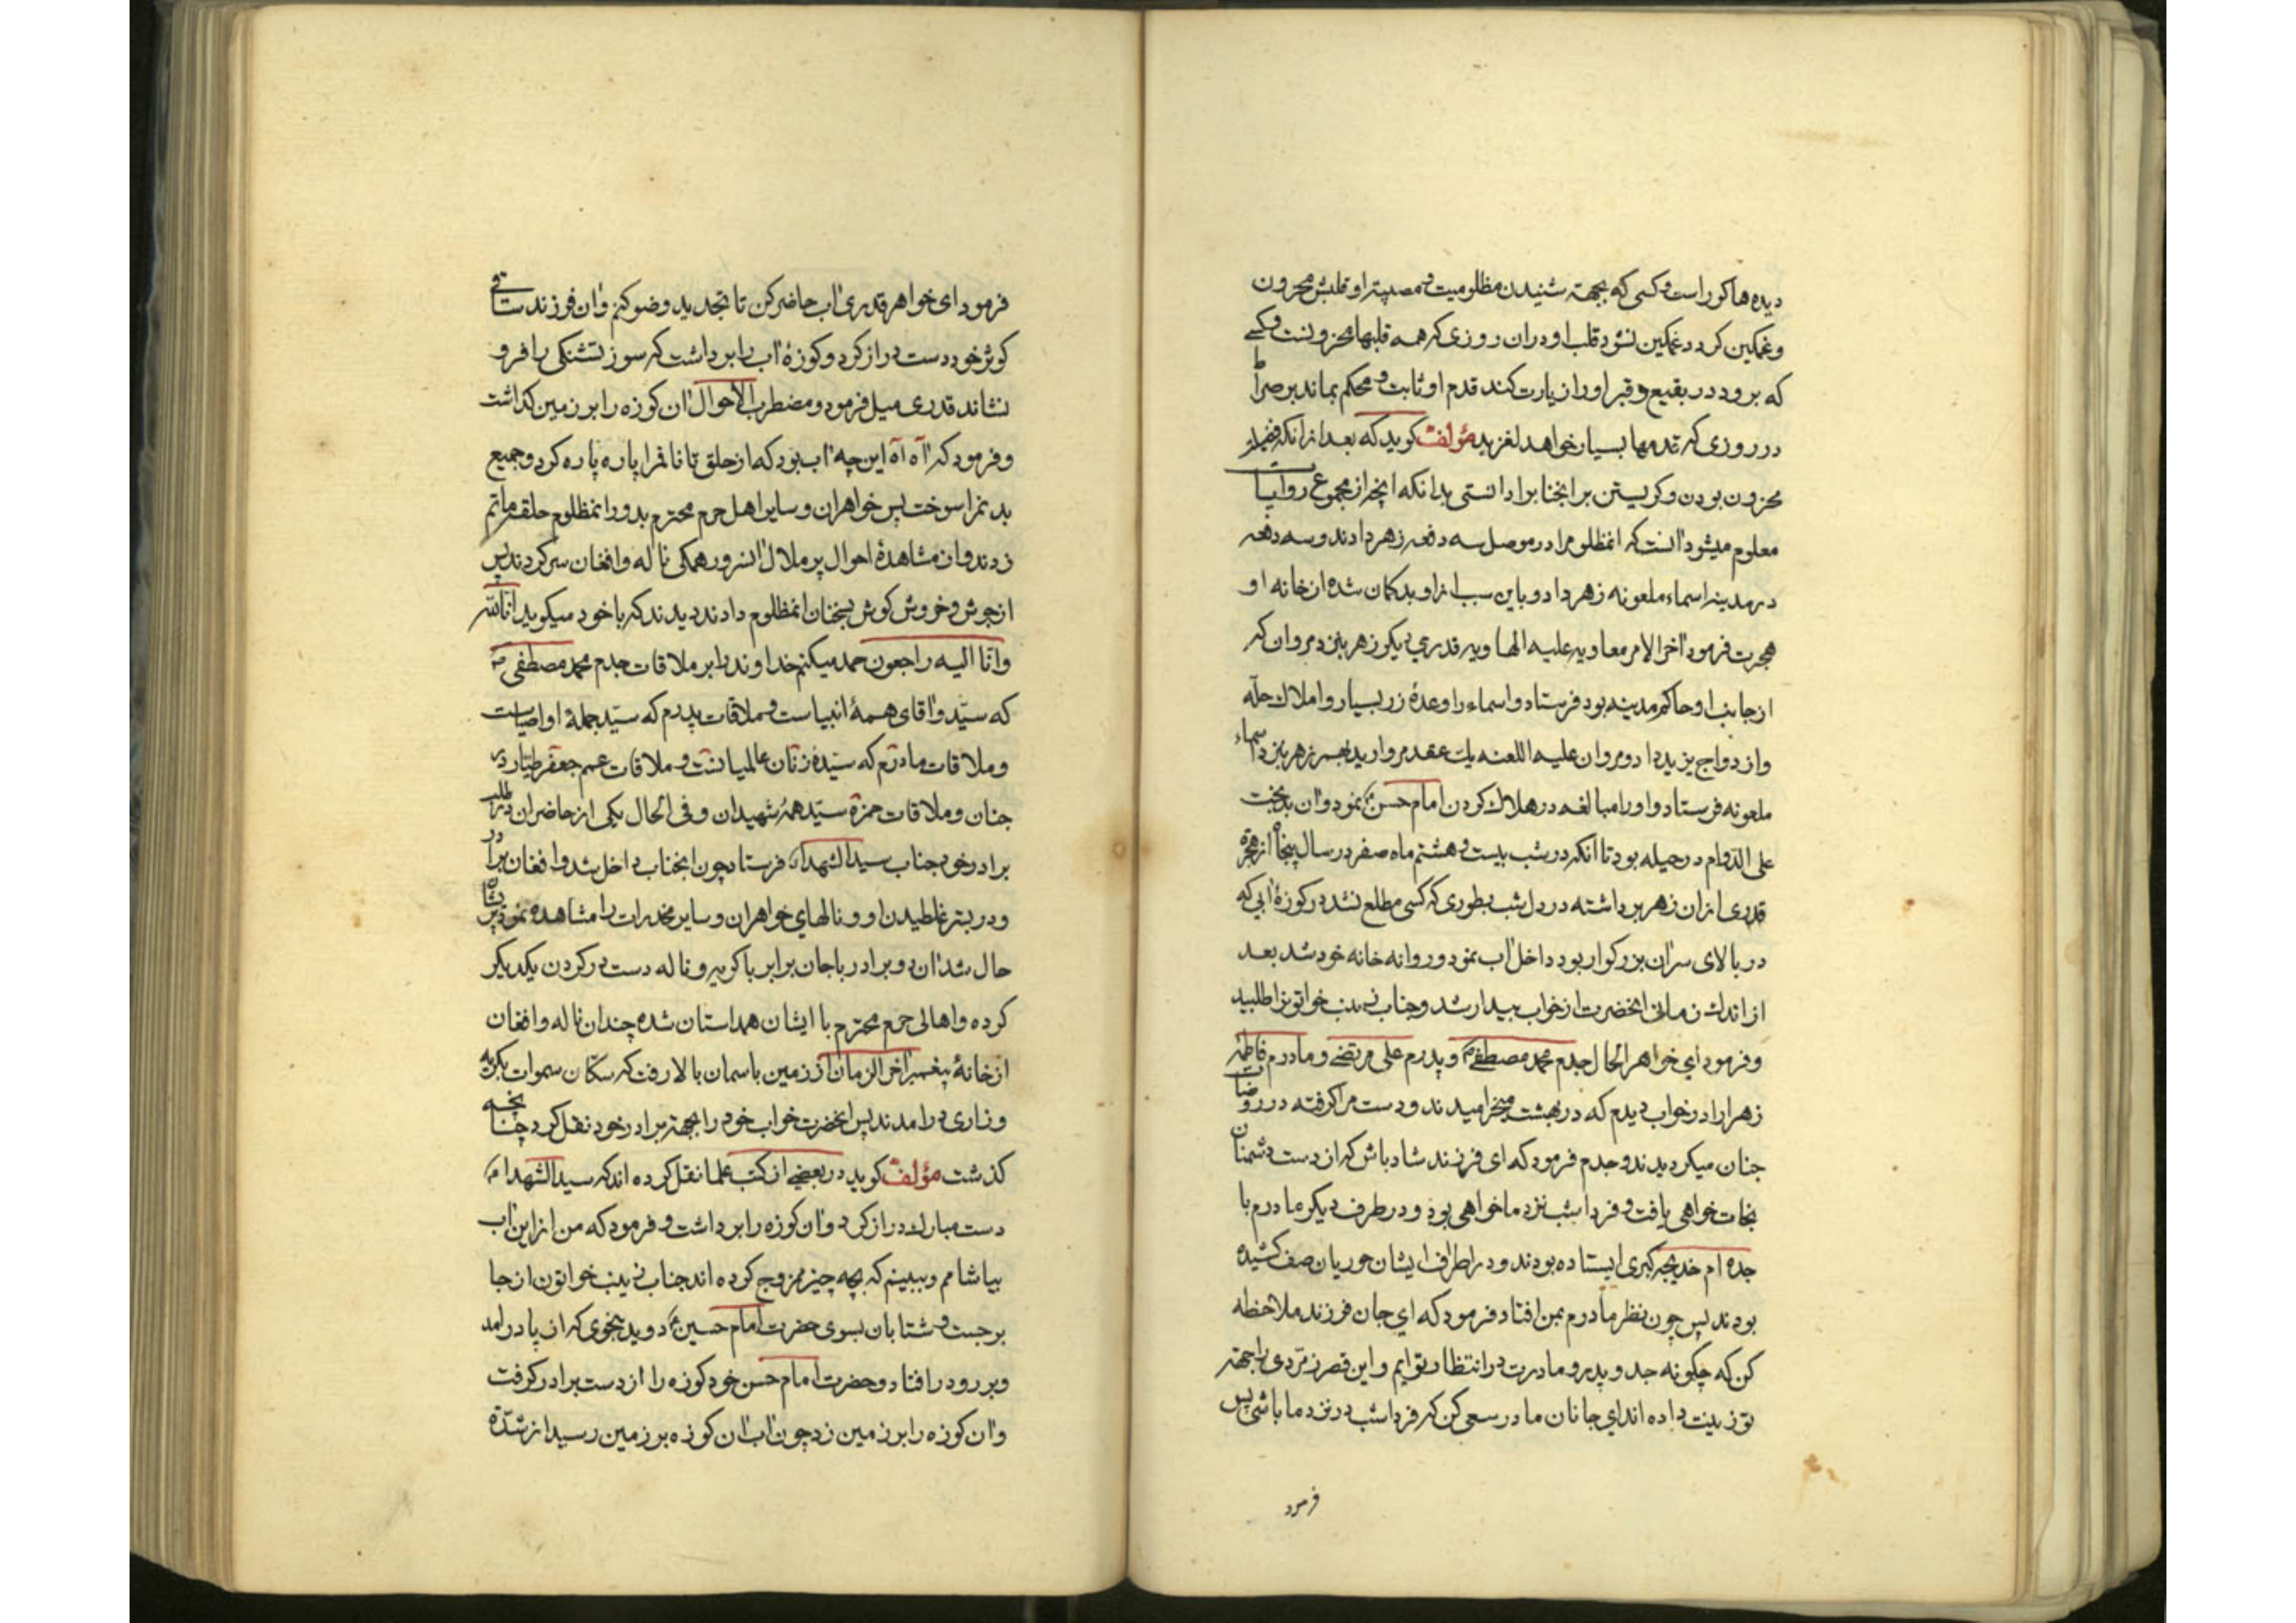 دیده ها کور است و کسی که بجهة شنیدن مظلومیت و مصیبتِ او قلبش محزون
و غمکین کردد غمکین نشود قلب او در ان روزی که همه قلبها محزونست و کسے
که برود در بقیع و قبر او را زیارت کند قدم او ثابت و محکم بماند بر صراط
در روزی که قدمها بسیار خواهد لغزید مؤلف کوید که بعد از انکه
محزون بودن و کریستن بر انجناب را دانستی بدانکه انچه از مجموع روایات
معلوم میشود انست که انمظلوم را در موصل سه دفعه زهر دادند و سه دفعه
در مدینه اسماء ملعونه زهر داد و باین سبب از او بدکمان شده از خانه او
هجرت فرمود اخر الامر معاویه علیه الهاویه قدری دیکر زهر بنزد مروان که
از جانب او حاکم مدینه بود فرستاد و اسماء را وعدهٔ زر بسیار و املاك حلّه
و ازدواج یزید داد و مروان علیه اللعنه یك عقد مروارید زهر بنزد اسماء
ملعونه فرستاد و او را مبالغه در هلاك کردن امام حسنؑ نمود و ان بدبخت
علی الدّوام در حیله بود تا انکه در شب بیست و هشتم ماه صفر در سال پنجاه از هجرة
قدری از ان زهر برداشته در دل شب بطوری که کسی مطلع نشد در کوزهٔ ابی که
در بالای سر ان بزرکوار بود داخل اب نمود و روانه خانه خود شد بعد
از اندك زمانی انحضرت از خواب بیدار شد و جناب زینب خواتون را طلبید
و فرمود ای خواهر الحال جدم محمد مصطفیؐ و پدرم علی مرتضے و مادرم فاطمه
زهرا را در خواب دیدم که در بهشت میخرامیدند و دست مرا کرفته در روضات
جنان میکردیدند و جدم فرمود که ای فرزند شاد باش که از دست دشمنان
نجات خواهی یافت و فردا شب نزد ما خواهی بود و در طرف دیکر مادرم با
جده ام خدیجه کبری ایستاده بودند و در اطراف ایشان حوریان صف کشیده
بودند پس چون نظر مادرم بمن افتاد فرمود که ای جان فرزند ملاحظه
کن که چکونه جد و پدر و مادرت در انتظار توایم و این قصر زمرّدی را جهة
تو زینت داده اند ای جانان مادر سعی کن که فردا شب در نزد ما باشی پس
فرمود
فرمود ای خواهر قدری اب حاضر کن تا تجدید وضو کنم و ان فرزند ساقی
کوثر خود دست دراز کرد و کوزهٔ اب را برداشت که سوز تشنکی را فرو
نشاند قدری میل فرمود و مضطرب الاحوال ان کوزه را بر زمین کذاشت
و فرمود که اه اه این چه اب بود که از حلق تا نافم را پاره پاره کرد و جمیع
بدنم را سوخت پس خواهران و سایر اهل حرم محترم بدور انمظلوم حلقه ماتم
زدند و از مشاهدهٔ احوال پر ملال انسرور همکی ناله و افغان سر کردند پس
از جوش و خروش کوش بسخنان انمظلوم دادند دیدند که با خود میکوید انّا للّه
و انّا الیه راجعون حمد میکنم خداوند را بر ملاقات جدم محمد مصطفیؐ
که سیّد و اقای همهٔ انبیاست و ملاقات پدرم که سیّد جملهٔ اوصیاست
و ملاقات مادرم که سیّدهٔ زنان عالمیانست و ملاقات عمم جعفر طیّار در
جنان و ملاقات حمزه سیّد همهٔ شهیدان و فی الحال یکی از حاضران در طلب
برادر خود جناب سید الشهداء فرستاد چون انجناب داخل شد و افغان برادر
و در بستر غلطیدن او و نالهای خواهران و سایر مخدرات را مشاهده نمود پریشان
حال شد ان دو برادر با جان برابر با کریه و ناله دست در کردن یکدیکر
کرده و اهالی حرم محترم با ایشان همداستان شده چندان ناله و افغان
از خانهٔ پیغمبر اخر الزمان از زمین باسمان بالا رفت که سکّان سموات بکریه
و زاری درامدند پس انحضرت خواب خود را بجهة برادر خود نقل کرد چنانچه
کذشت مؤلف کوید در بعضے از کتب علما نقل کرده اند که سید الشهداءؑ
دست مبارك دراز کرد و ان کوزه را برداشت و فرمود که من از این اب
بیاشامم و ببینم که بچه چیز ممزوج کرده اند جناب زینب خواتون از جا
برجست و شتابان بسوی حضرت امام حسینؑ دوید بنحوی که از پا درامد
و بر رو در افتاد و حضرت امام حسن خود کوزه را از دست برادر کرفت
و ان کوزه را بر زمین زد چون اب ان کوزه بر زمین رسید از شدّة